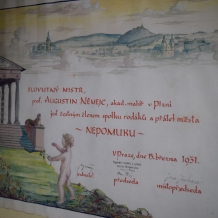 SLOVUTNÝ MISTR,
prof. AUGUSTIN NĚMEJC, akad. malíř v Plzni
jest čestným členem spolku rodáků a přátel města
~ NEPOMUKU ~
V Praze, dne 15. března 1931.
jednatel
předseda
místopředseda